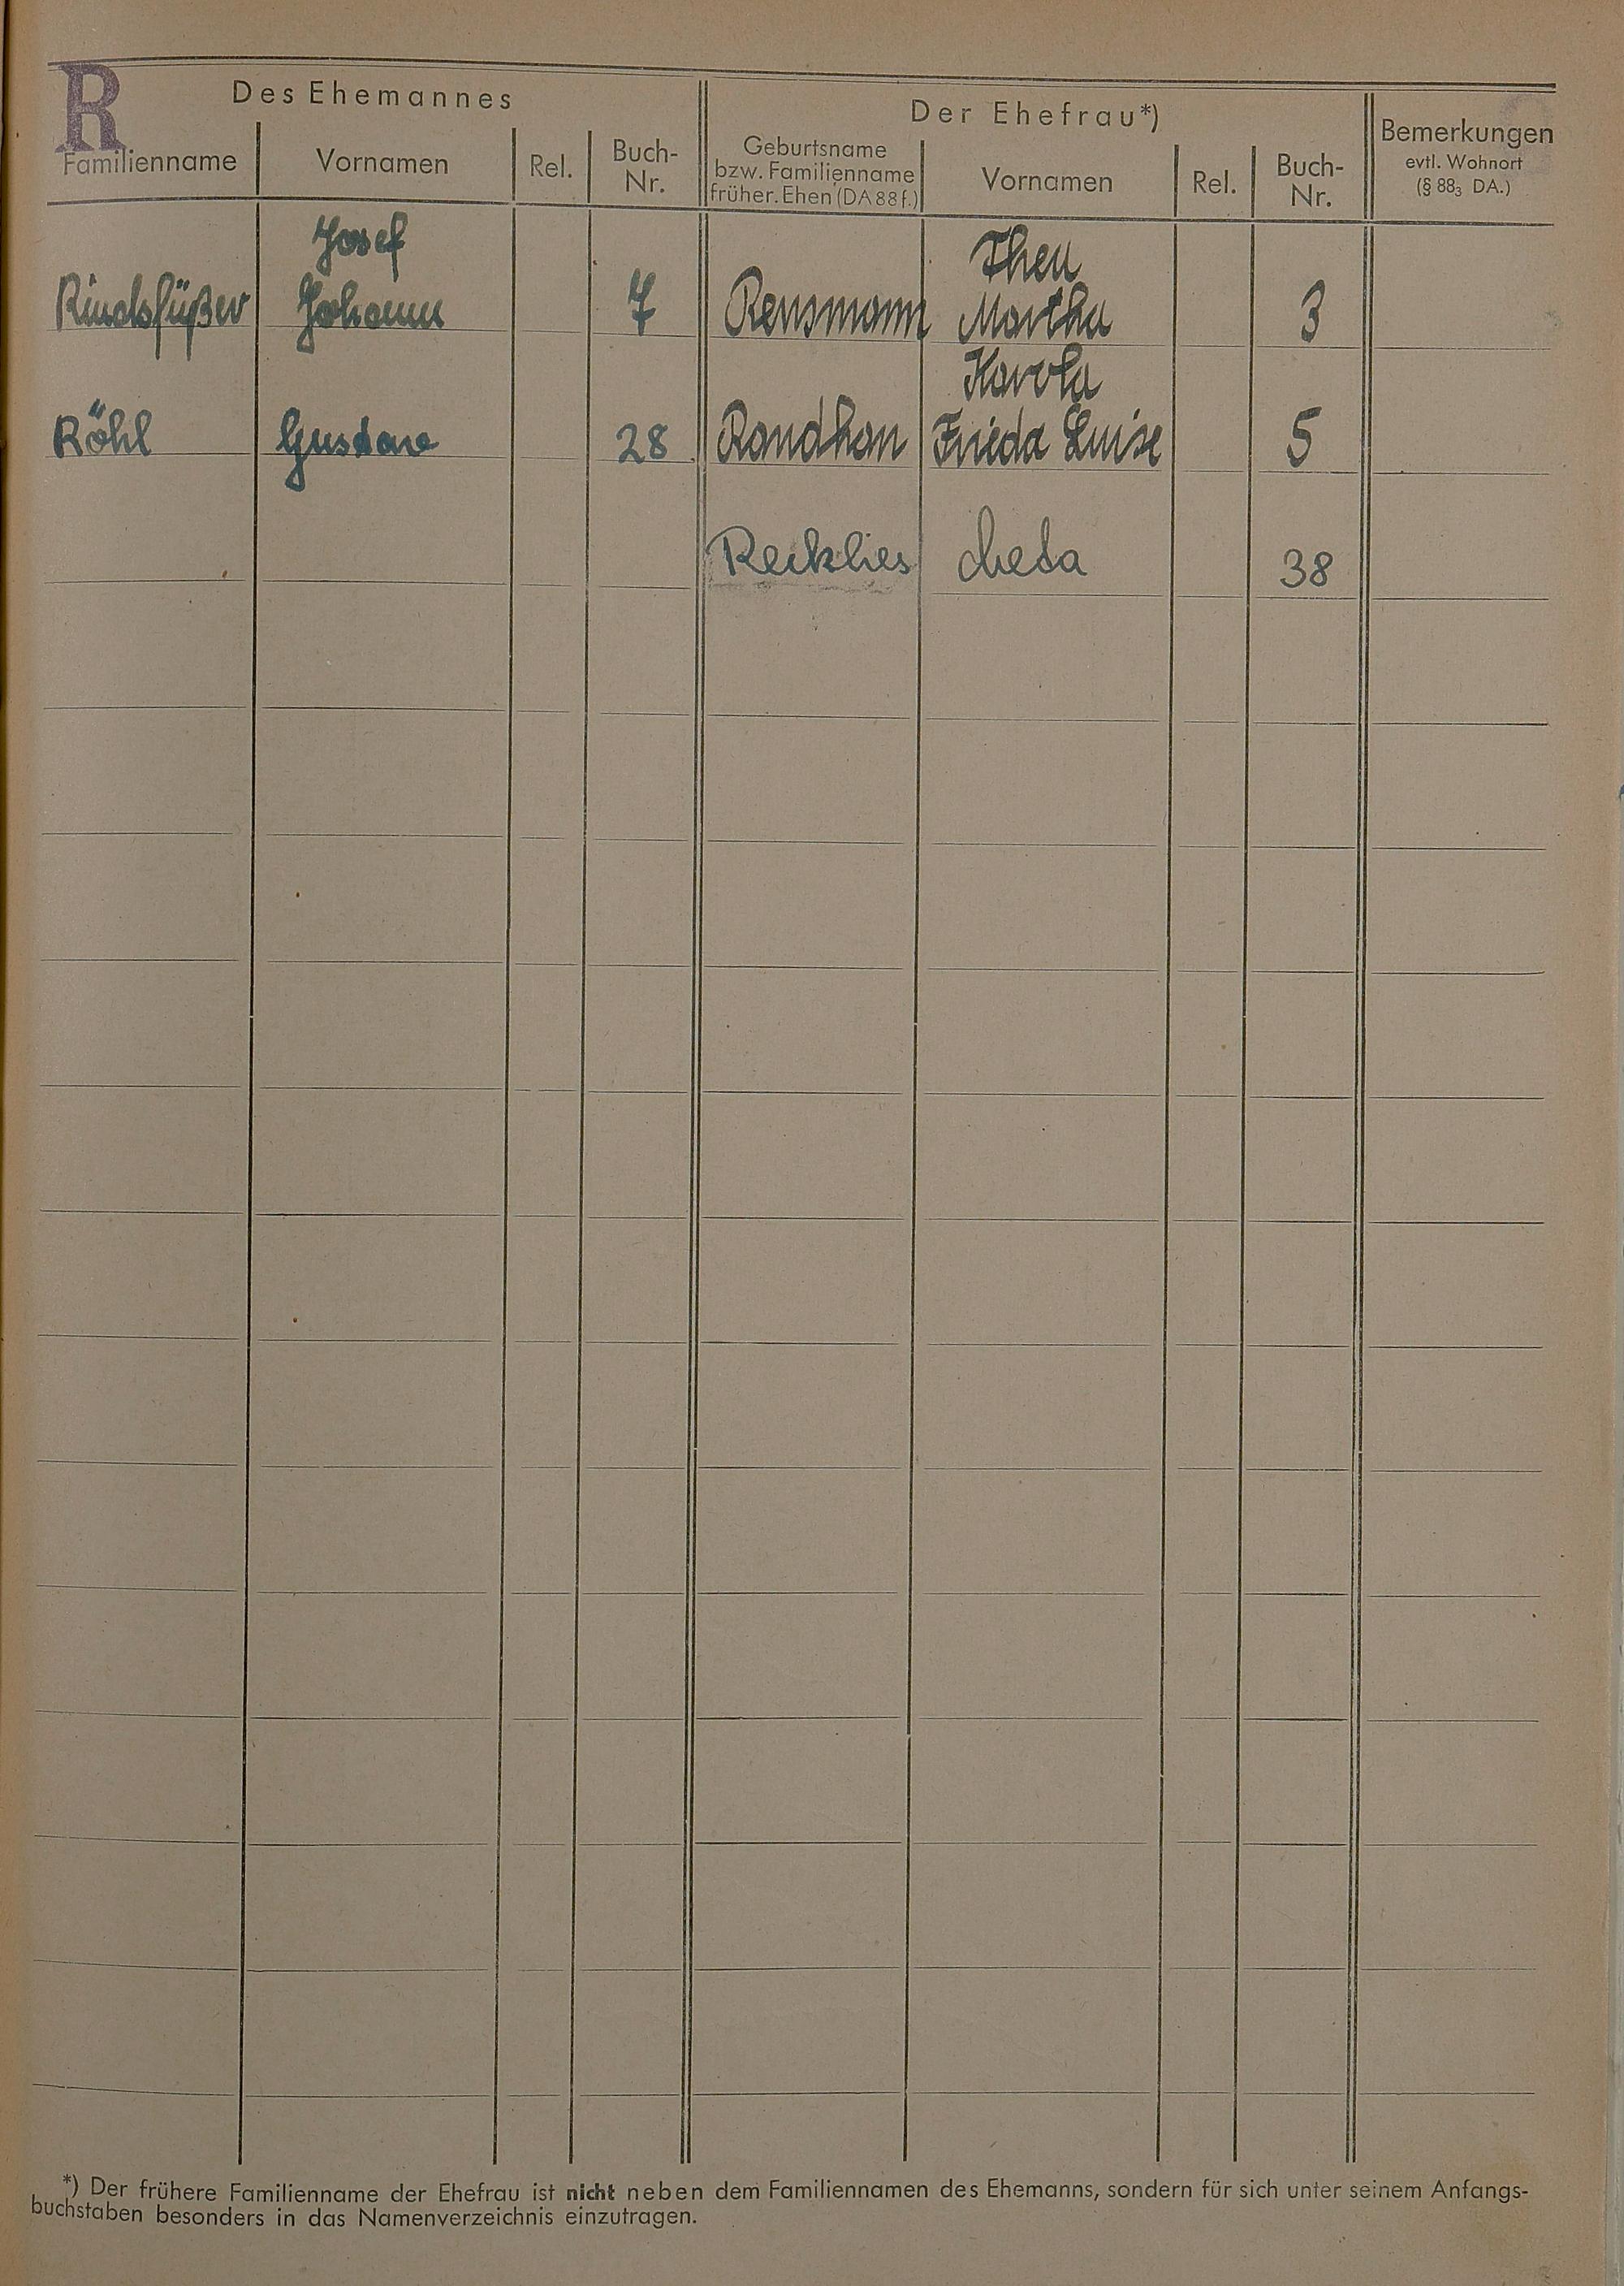 R
Des Ehemannes
Der Ehefrau*)
Familienname
Vornamen
Rel.
Buch-
Nr.
Geburtsname
bzw. Familienname
früher. Ehen (DA 88 f.)
Vornamen
Rel.
Buch-
Nr.
Bemerkungen
evtl. Wohnort
(§ 88₃ DA.)
Josef
Rindsfüßer Johann 7
Thea
Rensmann Martha 3
Karola
Röhl Gustav 28
Randhan Frieda Luise 5
Recklies 38
*) Der frühere Familienname der Ehefrau ist nicht neben dem Familiennamen des Ehemanns, sondern für sich unter seinem Anfangs-
buchstaben besonders in das Namenverzeichnis einzutragen.